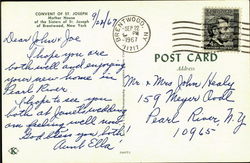 CONVENT OF ST. JOSEPH
Mother House
of the Sisters of St. Joseph
of Brentwood, New York
9/21/67
Dear John & Joe
I hope you are
both well and enjoying
your new home in
Pearl River.
I hope to see you
both at Janet's wedding
am feeling well now.
God bless you both
Aunt Ella
BRENTWOOD, NY
SEP 22
PM
1967
11717
POST CARD
Address
Mr. & Mrs John Healy
159 Meyer Oval
Pearl River, N.Y
10965